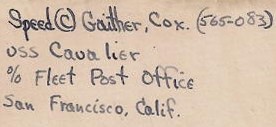 Speed(C) Gaither, Cox. (565-083)
USS Cavalier
% Fleet Post Office
San Francisco, Calif.